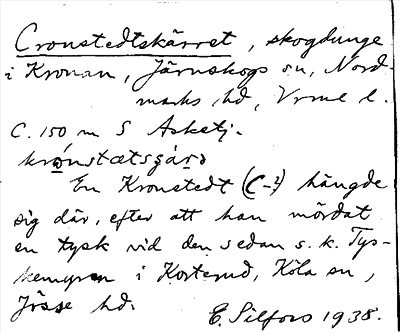 Cronstedtskärret, skogdunge
i Kronan, Järnskogs sn, Nord-
marks hd, Vrml l.
C. 150 m S Asketj.
En Kronstedt (C-?) hängde
sig där, efter att han mördat
en tysk vid den sedan s. k. Tys-
kemyren i Korterud, Köla sn,
Jösse hd.
E. Silfors 1938.